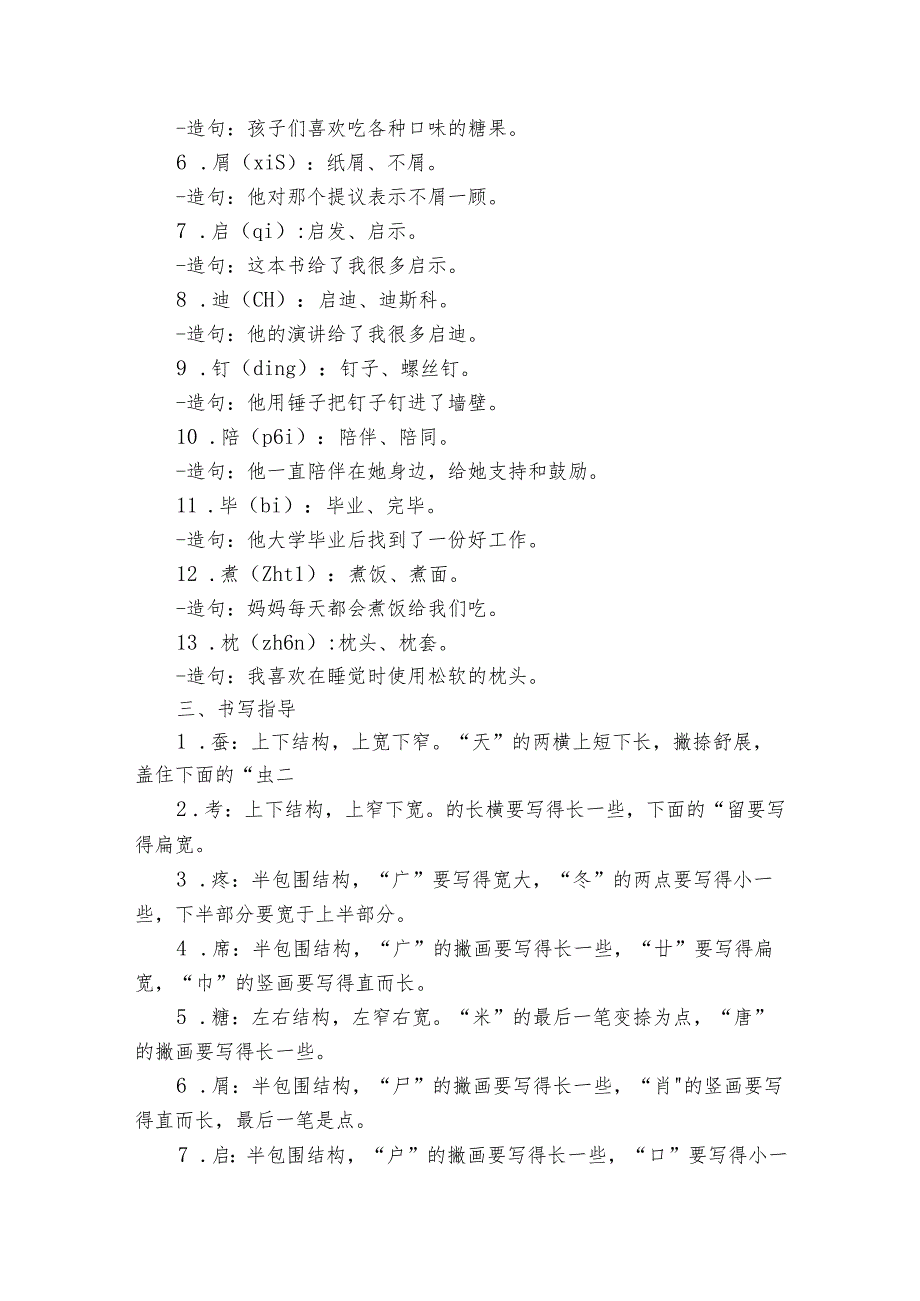 -造句：孩子们喜欢吃各种口味的糖果。
6 .屑（xiS）：纸屑、不屑。
-造句：他对那个提议表示不屑一顾。
7 .启（qi）:启发、启示。
-造句：这本书给了我很多启示。
8 .迪（CH）：启迪、迪斯科。
-造句：他的演讲给了我很多启迪。
9 .钉（ding）：钉子、螺丝钉。
-造句：他用锤子把钉子钉进了墙壁。
10 .陪（p6i）：陪伴、陪同。
-造句：他一直陪伴在她身边，给她支持和鼓励。
11 .毕（bi）：毕业、完毕。
-造句：他大学毕业后找到了一份好工作。
12 .煮（Zht1）：煮饭、煮面。
-造句：妈妈每天都会煮饭给我们吃。
13 .枕（zh6n）:枕头、枕套。
-造句：我喜欢在睡觉时使用松软的枕头。
三、书写指导
1 .蚕：上下结构，上宽下窄。“天”的两横上短下长，撇捺舒展，
盖住下面的“虫二
2 .考：上下结构，上窄下宽。的长横要写得长一些，下面的“留要写
得扁宽。
3 .疼：半包围结构，“广”要写得宽大，“冬”的两点要写得小一
些，下半部分要宽于上半部分。
4 .席：半包围结构，“广”的撇画要写得长一些，“廿”要写得扁
宽，“巾”的竖画要写得直而长。
5 .糖：左右结构，左窄右宽。“米”的最后一笔变捺为点，“唐”
的撇画要写得长一些。
6 .屑：半包围结构，“尸”的撇画要写得长一些，“肖"的竖画要写
得直而长，最后一笔是点。
7 .启：半包围结构，“户”的撇画要写得长一些，“口”要写得小一